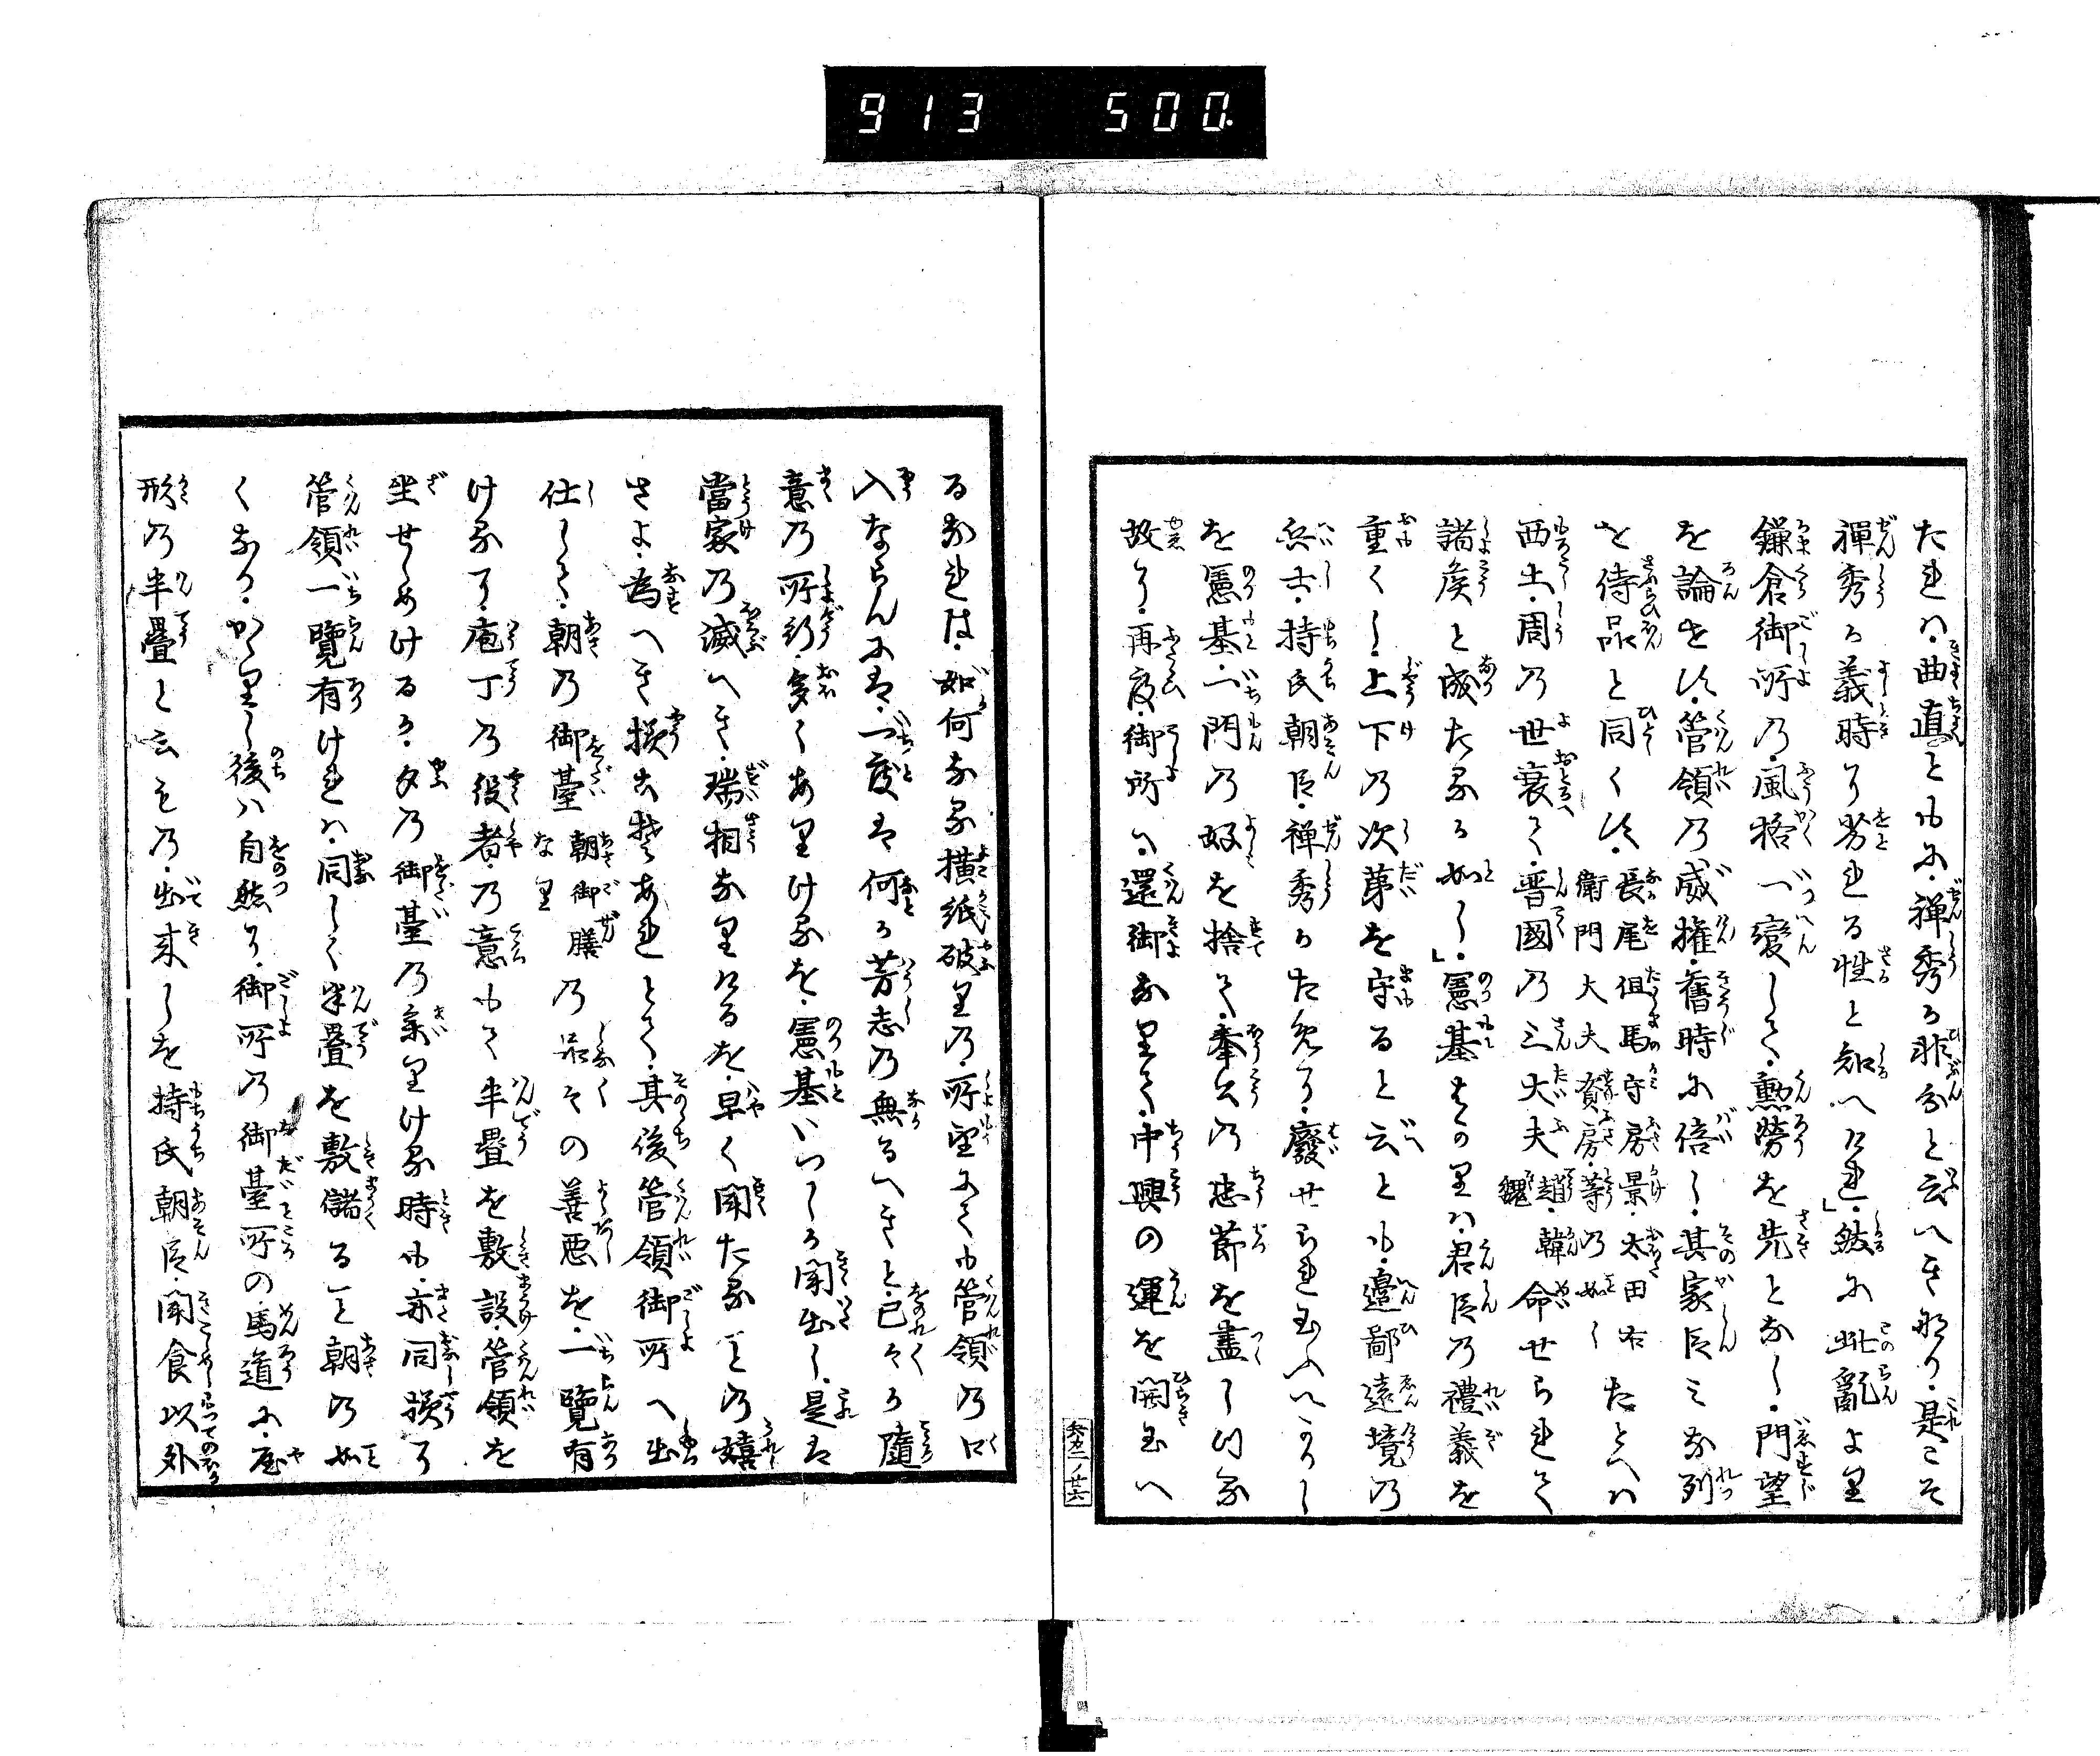 913 500.
たれハ曲直ともに禅秀か非分と云へき而り是こそ
禅秀か義時に劣れる性と知へけれ」然に此乱より
鎌倉御所乃風格一変して勲労を先となし門望
を論せす管領乃威権旧時に倍し其家臣ミな列
を侍品と同くす長尾但馬守房景太田右衛門大夫資房等乃如したとへハ
西土周乃世衰て晋國乃三大夫趙韓魏命せられて
諸矦と成たるか如し」憲基よのりハ君臣乃禮義を
重くし上下乃次第を守ると云とも邉鄙遠境乃
兵士持氏朝臣禅秀かために廢せられ玉ふへかりし
を憲基一門乃好を捨て奉公乃忠節を盡し付る
故に再度御所へ還御なりて中興の運を開玉へ
兵九二ノ廿六
るなれは如何なる横紙破り乃所望にても管領乃口
入ならんには一度は何か芳志乃無るへきと己々か随
意乃所行多くありけるを憲基いつしか聞出し是は
當家乃滅へき瑞相なりけるを早く聞たること乃嬉
さよ為へき様こそあれとて其後管領御所へ出
仕して朝乃御臺朝御膳なり乃品々その善悪を一覧有
けるに庖丁乃役者乃意もて半畳を敷設管領を
坐せしめけるか夕乃御臺乃参りける時も亦同様に
管領一覧有けれハ同しく半畳を敷儲ること朝乃如
くなりかゝりし後ハ自然に御所乃御臺所の馬道に屋
形乃半畳と云もの出来しを持氏朝臣聞食以外